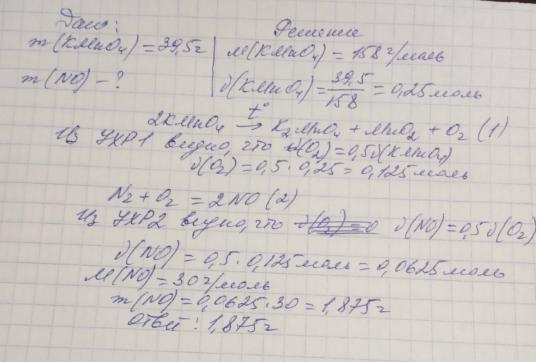 Дано:
m(KMnO₄) = 39,5г
m(NO) - ?
Решение
M(KMnO₄) = 158г/моль
ν(KMnO₄) = 39,5/158 = 0,25моль
2KMnO₄ t°→ K₂MnO₄ + MnO₂ + O₂ (1)
Из УХР1 видно, что ν(O₂) = 0,5ν(KMnO₄)
ν(O₂) = 0,5 · 0,25 = 0,125моль
N₂ + O₂ = 2NO (2)
Из УХР2 видно, что ν(NO) = 0,5ν(O₂)
ν(NO) = 0,5 · 0,125моль = 0,0625моль
M(NO) = 30г/моль
m(NO) = 0,0625 · 30 = 1,875г
Ответ: 1,875г